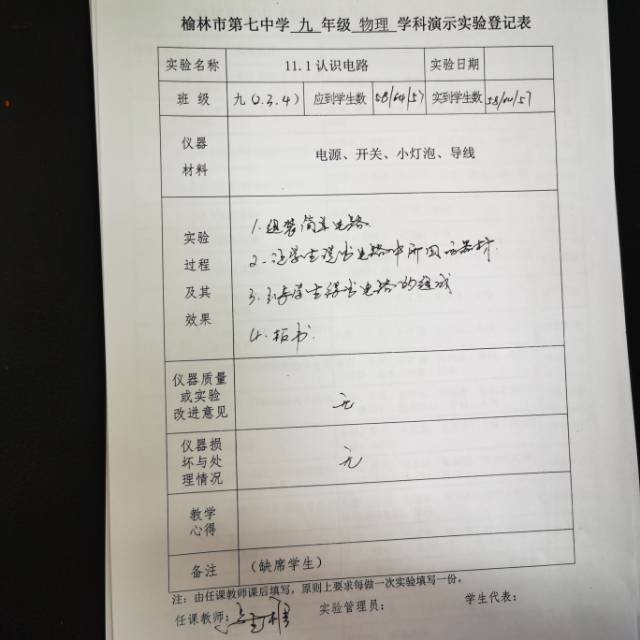 榆林市第七中学 九 年级 物理 学科演示实验登记表
实验名称 11.1 认识电路 实验日期
班 级 九(2.3.4) 应到学生数 58/64/57 实到学生数 58/64/57
仪器
材料
电源、开关、小灯泡、导线
实验
过程
及其
效果
1.组装简单电路
2.让学生说出电路中所用元器材.
3.引导学生得出电路的组成
4.板书.
仪器质量
或实验
改进意见
无
仪器损
坏与处
理情况
无
教学
心得
备注 (缺席学生)
注：由任课教师课后填写，原则上要求每做一次实验填写一份。
任课教师： 实验管理员： 学生代表：